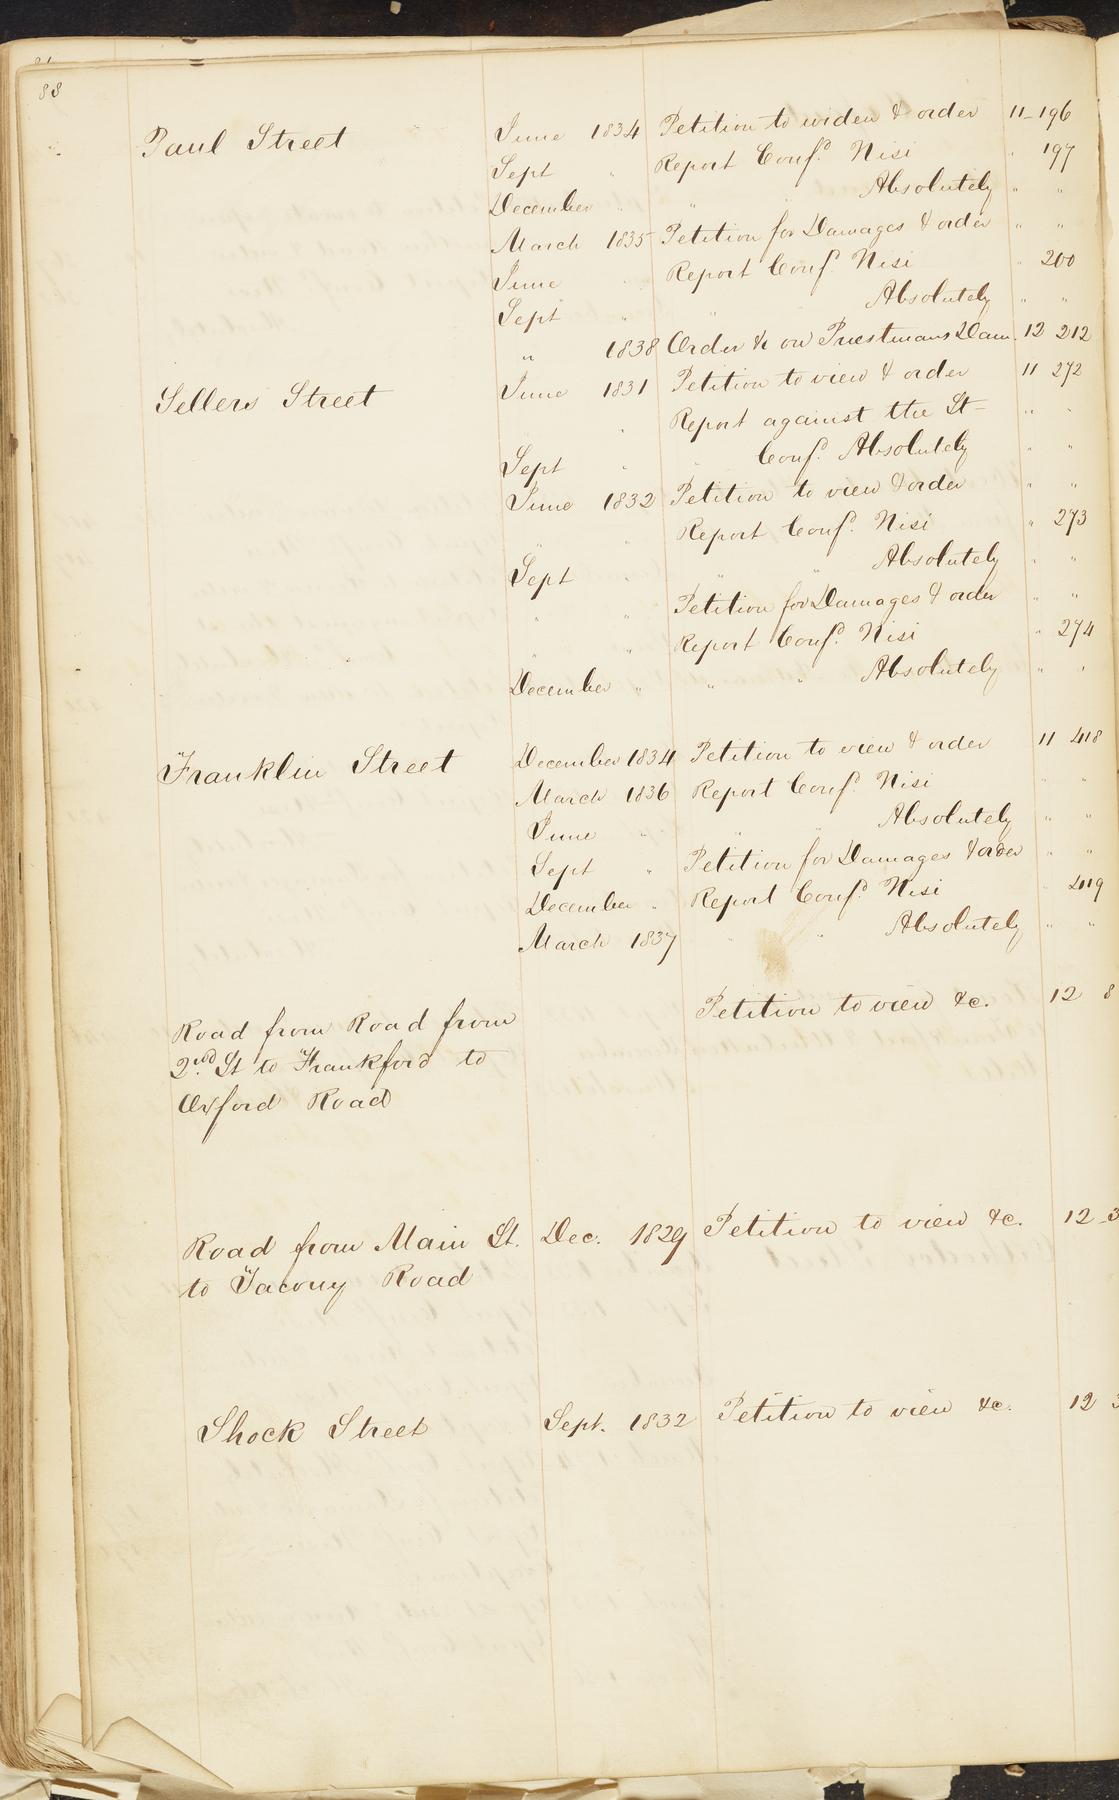 88
Paul Street June 1834 Petition to widen & order 11-196
Sept " Report Conf. Nisi " 197
December " " Absolutely " "
March 1835 Petition for Damages & order " "
June " Report Conf. Nisi " 200
Sept " " Absolutely " "
" 1838 Order &c on Priestmans Dam. 12 212
Sellers Street June 1831 Petition to view & order 11 272
" Report against the St- " "
Sept " " Conf. Absolutely " "
June 1832 Petition to view & order " "
" " Report Conf. Nisi " 273
Sept " " Absolutely " "
" " Petition for Damages & order " "
" " Report Conf. Nisi " 274
December " " " Absolutely " "
Franklin Street December 1834 Petition to view & order 11 418
March 1836 Report Conf. Nisi " "
June " " " Absolutely " "
Sept " Petition for Damages & order " "
December " Report Conf. Nisi " 419
March 1837 " " Absolutely " "
Road from Road from Petition to view &c. 12 8
2nd. St to Frankford to
Oxford Road
Road from Main St. Dec. 1829 Petition to view &c. 12-3
to Tacony Road
Shock Street Sept. 1832 Petition to view &c. 12 3